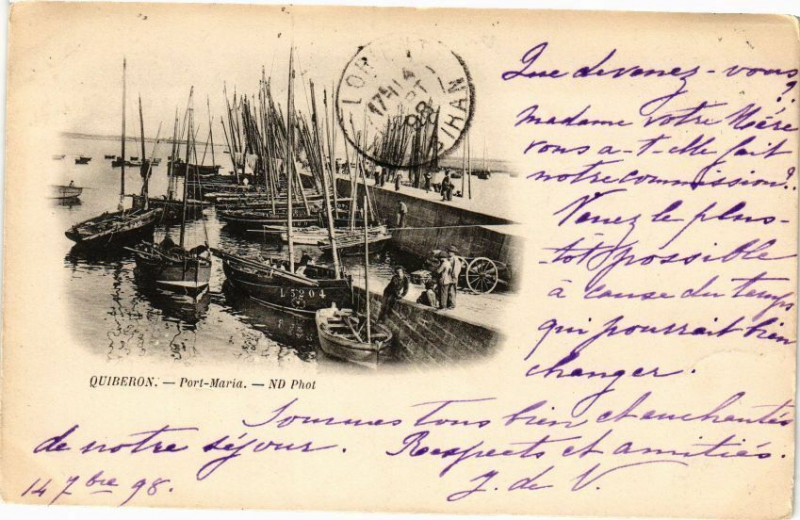 Que devenez-vous
?
Madame votre Mère
vous a-t-elle fait
notre commission?.
Venez le plus-
tôt possible
à cause du temps
qui pourrait bien
changer.
LOR
17H 14
PT
98
BIHAN
L3204
QUIBERON. — Port-Maria. — ND Phot
Sommes tous bien et enchantés
de notre séjour. Respects et amitiés.
14 7bre 98. J. de V.